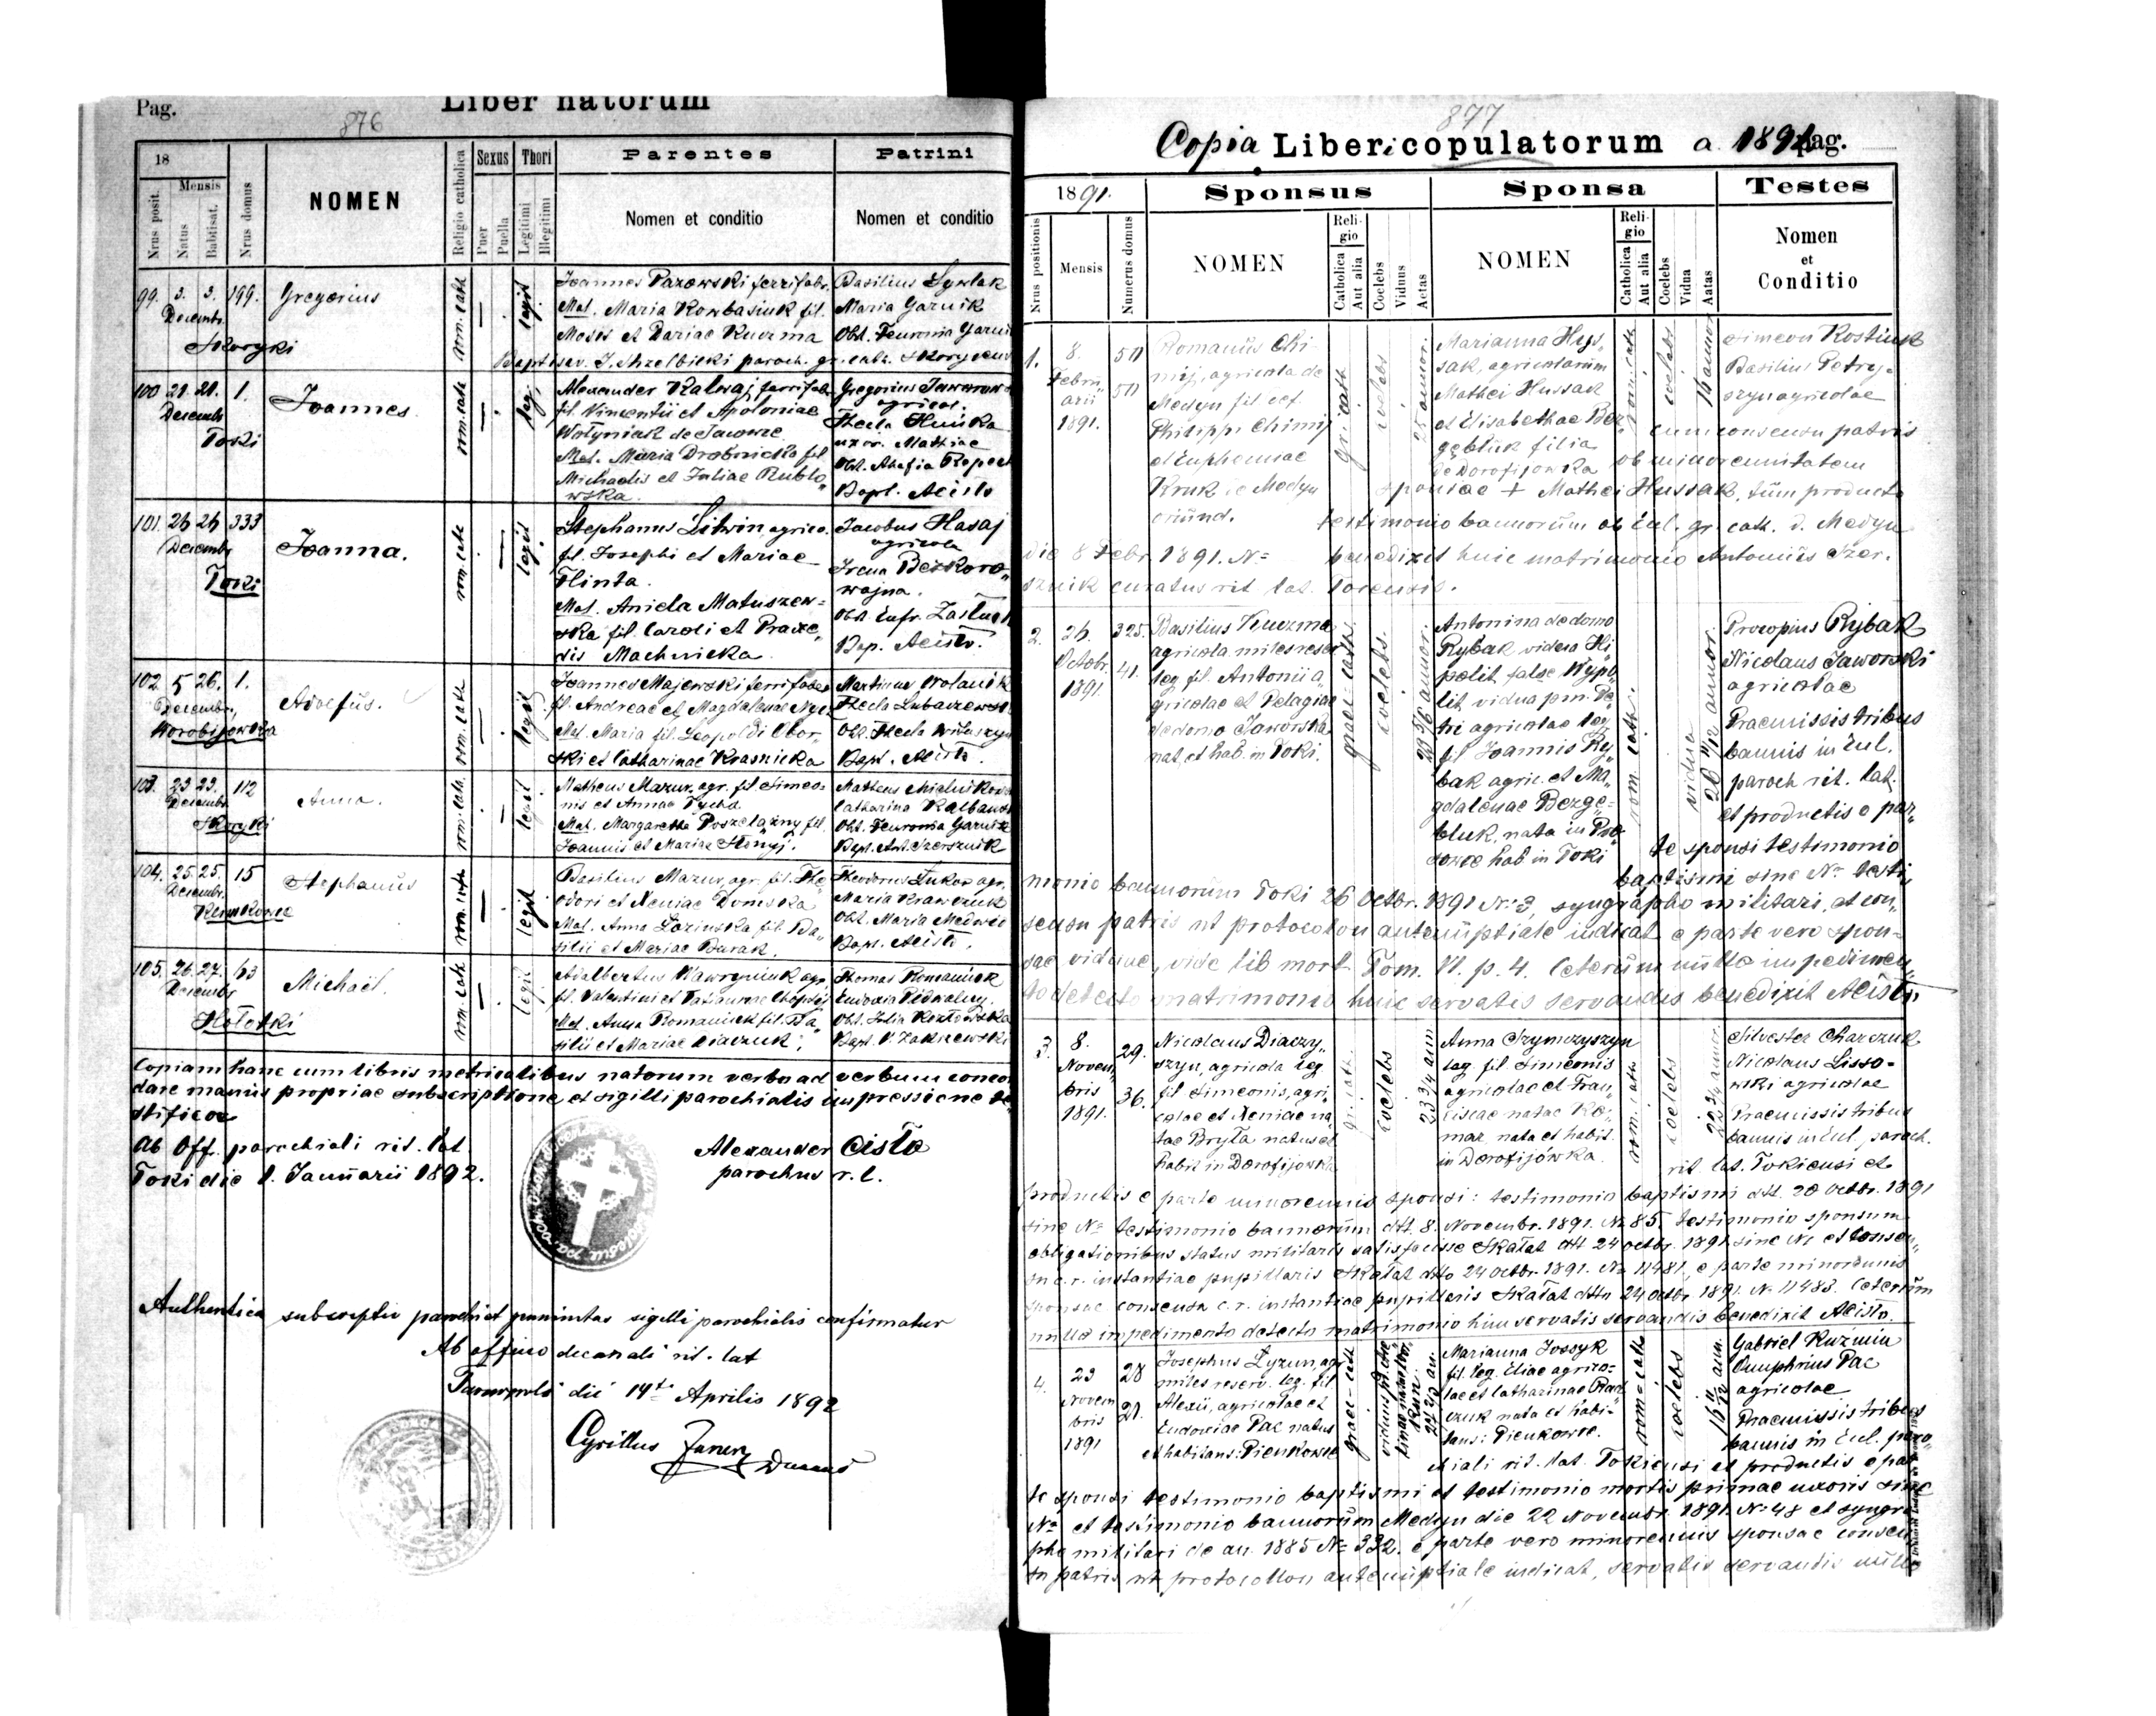 Pag.
876
Liber natorum
18
Nrus posit.
Mensis
Natus
Babtisat.
Nrus domus
NOMEN
Religio catholica
Sexus
Puer
Puella
Thori
Legitimi
Illegitimi
Parentes
Nomen et conditio
Patrini
Nomen et conditio
99. 3. 3. 199. Gregorius
Decembr.
Skoryki
rom. cath.
legit
Joannes Parowski ferrifabr.
Mat. Maria Kowbasiuk fil.
Moses et Dariae Kuczma
Basilius
Maria Garnik
Obst. Feuronia
paroch. gr. cath.
100 21. 21. 1. Joannes.
Decemb
Toki
rom. cath
leg.
Alexander
fil. Vincentii et Apoloniae
Wołyniak de
Mat. Maria fil
Michaelis et Juliae Rubło„
wska.
Gregorius
agricol.
Thecla
uxor. Mathiae
Bapt. ACisło
101. 26 26 333 Joanna.
Decembr
Toki
rom. cath
legit
Stephanus Litwin, agrico.
fil. Josephi et Mariae
Flinta.
Mat. Aniela Matuszew=
ska fil. Caroli et Praxe„
dis Machnicka.
Jacobus Hasaj
agricola
Irena Bezkoro„
wajna.
Obst. Eufr.
Bap. ACisło.
102 5 26. 1. Adolfus.
Decembr,
Worobijowka
rom. cath
legit
Joannes Majewski
fil. Andreae et Magdalenae
Mat. Maria fil. Leopoldi Obor„
ski et Catharinae Krasnicka
Martinus
Thecla
Obst. Thecla
Bapt. ACisło.
103. 23 23. 112 Anna.
Decemb
Skoryki
rom. cath.
legit
Matheus Mazur, agr. fil. Simeo=
nis et Annae
Mat. Margaretha fil.
Joannis et Mariae
Matheus
Catharina
Obst. Feuronia
Bapt. Ant. Szersznik
104. 25. 25. 15 Stephanus
Decembr.
Pienkowce
rom. cath
legit
Basilius Mazur, agr. fil. The
odori et Xeniae
Mat. Anna Łozinska fil. Ba„
silii et Mariae Burak.
Theodorus agr.
Maria Krawczuk
Obst. Maria
Bapt. ACisło.
105. 26. 27. 63 Michaël.
Decembr
Hołotki
rom. cath
legit
Adalbertus agr.
fil. Valentini et
Mat. Anna Romaniuk fil. Ba„
silii et Mariae
Thomas Romaniuk
Eudoxia
Obst. Julia Kozłowska
Bapt. V. Zakrzewski
Copiam hanc cum libris metricalibus natorum verbo ad verbum concor
dare manus propriae subscriptione, et sigilli parochialis impressione te„
stificor
Ab Off. parochiali rit. lat
Toki die 1. Januarii 1892.
Alexander Cisło
parochus r. l.
Authentica subscriptio parochi et sigilli parochialis confirmatur
Ab officio decanali rit. lat
die 14te Aprilis 1892
Cyrillus
877
Copia Liberi copulatorum a. 1891 pag.
1891.
Nrus positionis
Mensis
Numerus domus
Sponsus
NOMEN
Religio
Catholica
Aut alia
Coelebs
Viduus
Aetas
Sponsa
NOMEN
Religio
Catholica
Aut alia
Coelebs
Vidua
Aatas
Testes
Nomen
et
Conditio
1.
8.
Februarii
1891.
Romanus Chi
mij, agricola de
Medyn fil def.
Philippi Chimij
et Euphemiae
Kruk de Medyn
oriund.
gr. cath
coelebs
25 annor.
Marianna Hus„
sak, agricolarum
Mathei Hussak
et Elisabethae Bez„
filia
de Dorofijowka
rom. cath
coelebs
Simeon Kostiuk
Basilius Petry=
szyn agricolae
cum consensu patris
ob minorennitatem
sponsae + Mathei Hussak, tum producto
testimonio bannorum ab Eccl. gr. cath. d. Medyn
die 8 Febr. 1891. No benedixit huic matrimonio Antonius Szer.
sznik curatus rit lat. Tokensis.
2.
26.
Octobr.
1891.
325.
41.
Basilius Kuczma
agricola miles reser
leg fil. Antonii a„
gricolae et Pelagiae
de domo Jaworska
nat. et hab. in Toki.
graec cath.
coelebs.
23 5/6 annor.
Antonina de domo
Rybak viduo Hi
polit false Wypo
lit, vidua p.m. Pe
tri agricolae leg.
fil Joannis Ry„
bak agric. et Ma„
gdalenae Bezge=
bluk, nata in
hab in Toki
rom. cath.
vidua
26 11/12 annor.
Procopius Rybak
Nicolaus Jaworski
agricolae
Praemissis tribus
bannis in Eccl.
paroch rit. lat.
et productis e par„
te sponsi testimonio
baptismi sine No testi„
monio bannorum Toki 26 Octbr. 1891 No 3, syngrapho militari, et con„
sensu patris ut protocollon antenuptiale indicat e parte vero spon=
sae viduae, vide lib mort Tom. VI. p. 4. Ceterum nullo impedimen„
to detecto matrimonio huic servatis servandis benedixit ACisło
3.
8.
Novem„
bris
1891.
29.
36.
Nicolaus Diaczy„
szyn, agricola leg
fil Simeonis, agri„
colae et Xeniae na„
tae Bryła natus et
habit in Dorofijowka
gr. cath.
coelebs
23 3/4 ann
Anna Szymczyszyn
leg. fil. Simeonis
agricolae et Fran„
ciscae natae Ko„
mar nata et habit.
in Dorofijówka.
rom. cath
coelebs
Silvester Charczuk
Nicolaus Lisso=
wski agricolae
Praemissis tribus
bannis in Eccl. paroch.
rit lat. Tokiensi et
productis e parte minorennis sponsi: testimonio baptismi dtt. 20 Octbr. 1891
sine No testimonio bannorum dtt. 8. Novembr. 1891. No 85. testimonio sponsum
obligationibus status militaris satisfecisse Skałat dtt 24 octbr. 1891 sine No et consen„
su c. r. instantiae pupillaris Skałat dtto 24 Octbr. 1891. No 11481, e parte minorennis
sponsae consensu c. r. instantiae pupillaris Skałat dtto 24 octbr 1891. No 11483. Ceterum
nullo impedimento detecto matrimonio huic servatis servandis benedixit ACisło.
4.
23
Novem
bris
1891
28
21.
Josephus Łyzun, agr
miles reserv. leg. fil.
Alexii, agricolae et
Eudociae Pac natus
et habitans: Pienkowce
graec-cath
Marianna Jossyk
fil. leg. Eliae agrico=
lae et Catharinae
nata et habi=
tans: Pienkowce.
rom-cath
coelebs
16 11/12 ann.
Gabriel Kuzmin
Onuphrius Pac
agricolae
Praemissis tribus
bannis in Eccl. paro„
chiali rit. lat. Tokiensi et productis e par
te sponsi testimonio baptismi et testimonio mortis primae uxoris sine
No et testimonio bannorum Medyn die 22 Novembr. 1891. No 48 et syngra
pho militari de an. 1885 No 332. e parte vero minorennis sponsae consen
su patris ut protocollon antenuptiale indicat, servatis servandis nullo